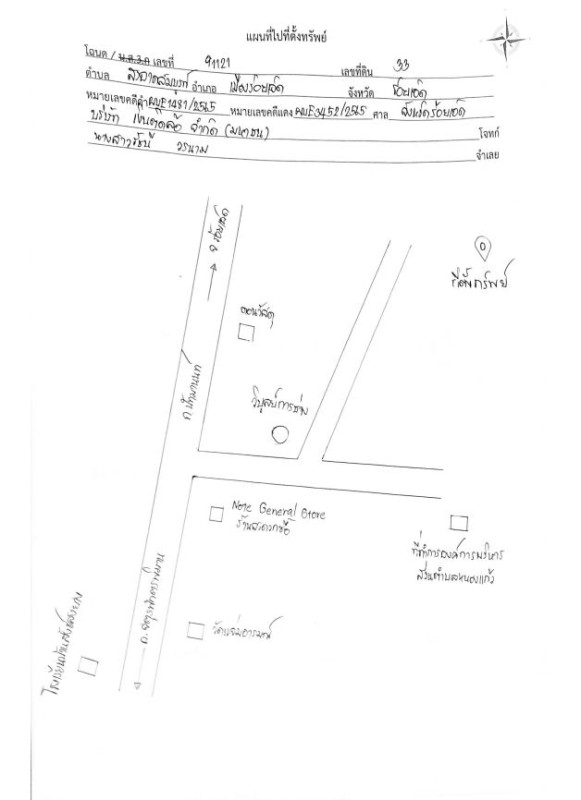 แผนที่ไปที่ตั้งทรัพย์
โฉนด / น.ส.3 ก เลขที่ 91121 เลขที่ดิน 33
ตำบล สะอาดสมบูรณ์ อำเภอ เมืองร้อยเอ็ด จังหวัด ร้อยเอ็ด
หมายเลขคดีดำ ผบE1481/2565 หมายเลขคดีแดง ผบE3452/2565 ศาล จังหวัดร้อยเอ็ด
บริษัท เงินติดล้อ จำกัด (มหาชน) โจทก์
นางสาวรัชนี วรนาม จำเลย
จ.ร้อยเอ็ด
ที่ตั้งทรัพย์
วัสดุ
ถ.ปัทมานนท์
วิบูลย์การช่าง
Note General Store
ร้านสะดวกซื้อ
ที่ทำการองค์การบริหาร
ส่วนตำบลหนองแก้ว
วัดแจ่มอารมณ์
โรงเรียน